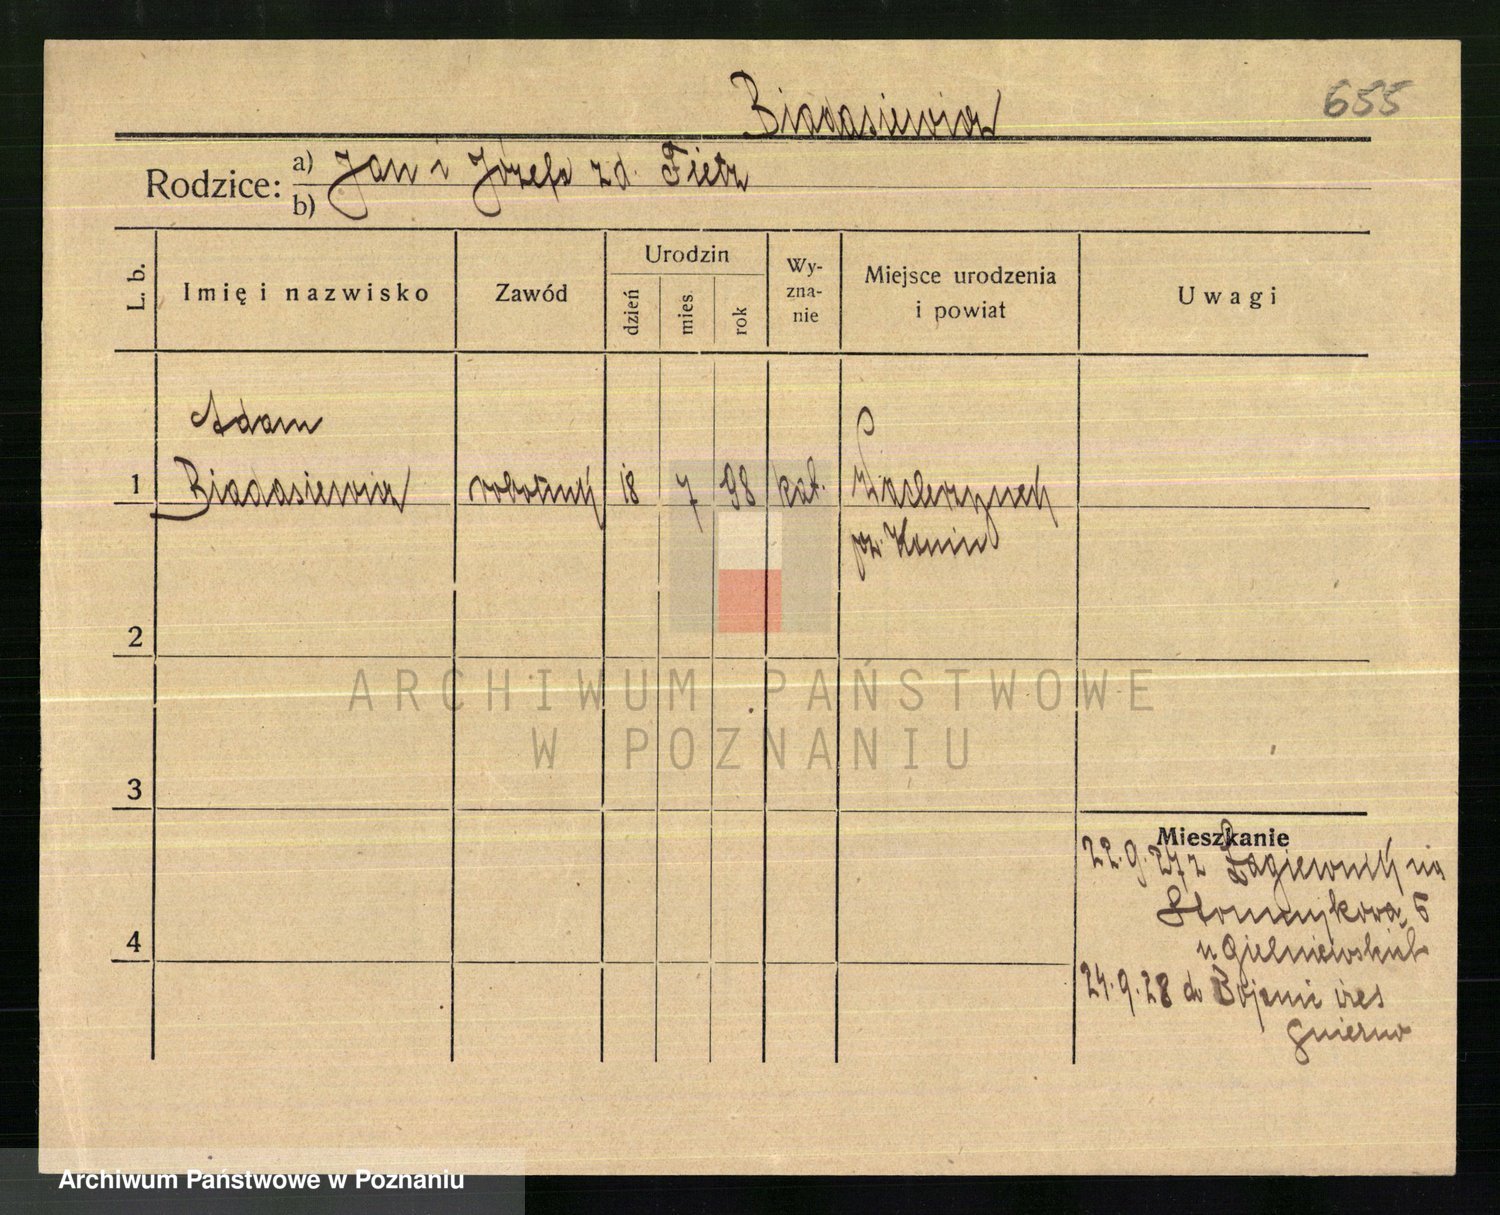 655
Biadasiewicz
Rodzice: a) Jan i Józefa z d. Fietz
b)
L. b.
Imię i nazwisko
Zawód
Urodzin
dzień
mies
rok
Wy-
zna-
nie
Miejsce urodzenia
i powiat
Uwagi
Adam
1 Biadasiewicz robotnik 18 7 98 kat.
pow. Konin
2
3
4
Mieszkanie
22.9.27 z Łagiewnik na
5
24.9.28 do
Gniezno
ARCHIWUM PAŃSTWOWE
W POZNANIU
Archiwum Państwowe w Poznaniu